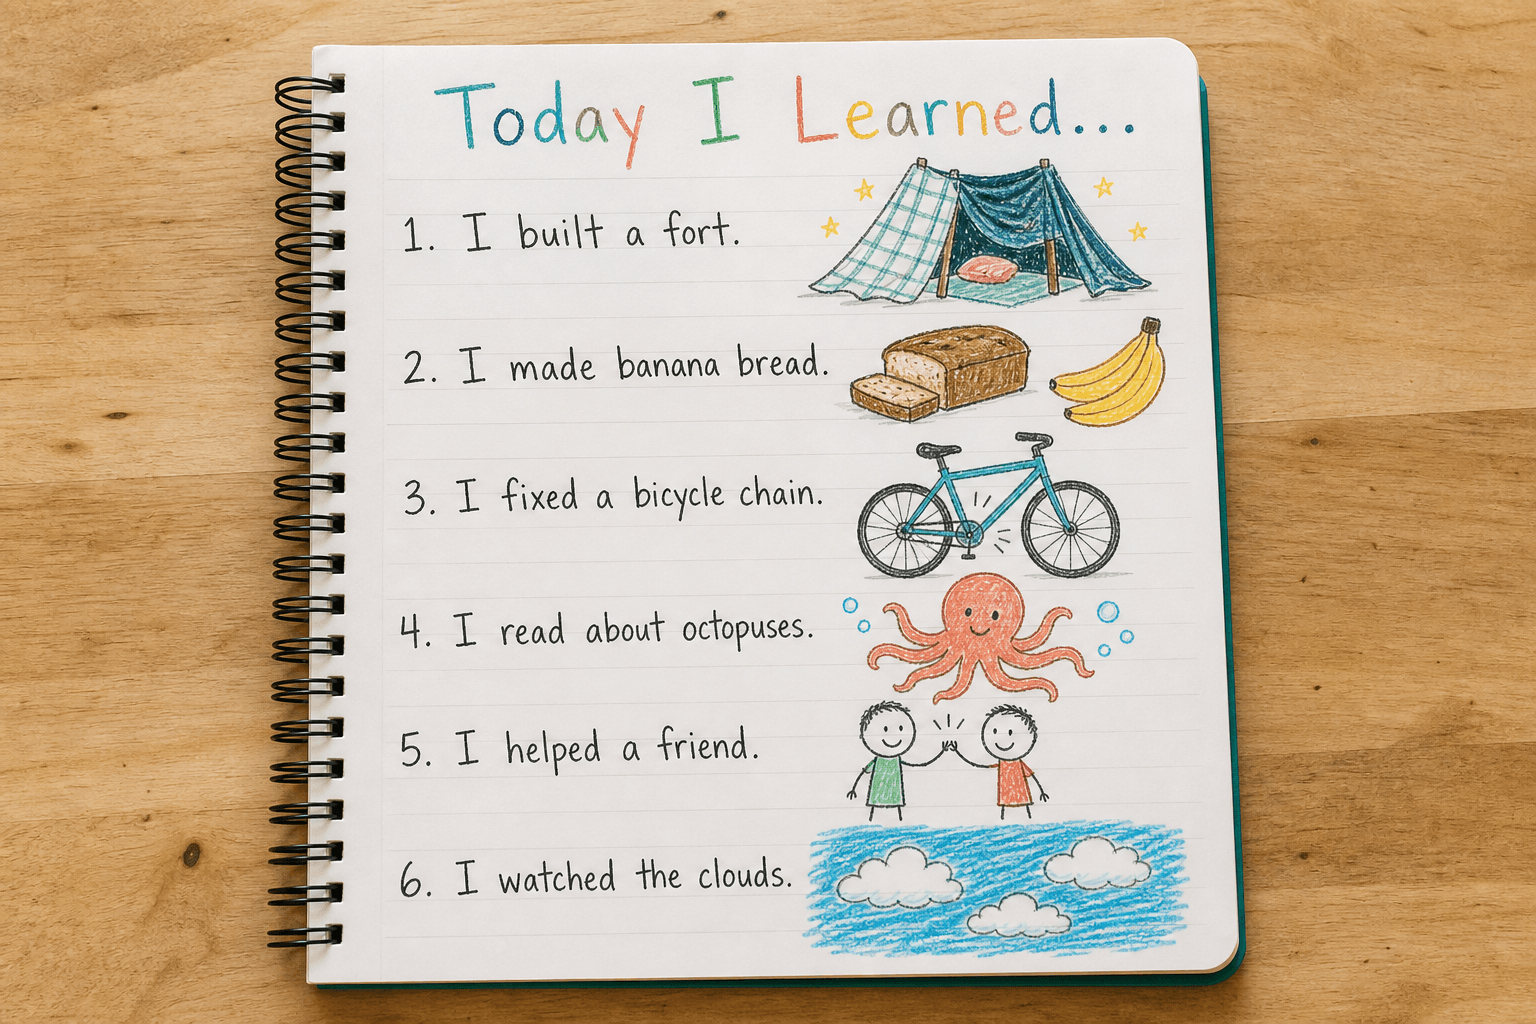 Today I Learned...
1. I built a fort.
2. I made banana bread.
3. I fixed a bicycle chain.
4. I read about octopuses.
5. I helped a friend.
6. I watched the clouds.